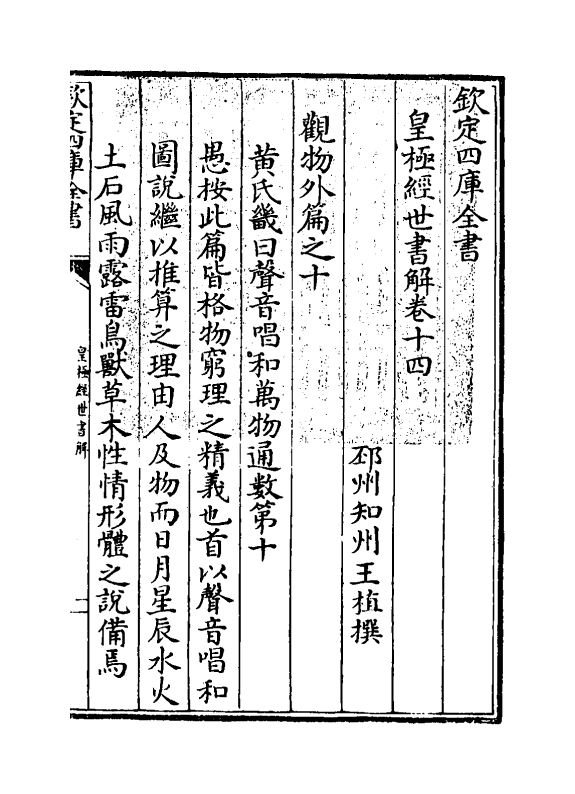 欽定四庫全書
皇極經世書解卷十四
邳州知州王植撰
觀物外篇之十
黄氏畿曰聲音唱和萬物通數第十
愚按此篇皆格物窮理之精義也首以聲音唱和
圖説繼以推算之理由人及物而日月星辰水火
土石風雨露雷鳥獸草木性情形體之説備焉
欽定四庫全書
皇極經世書解